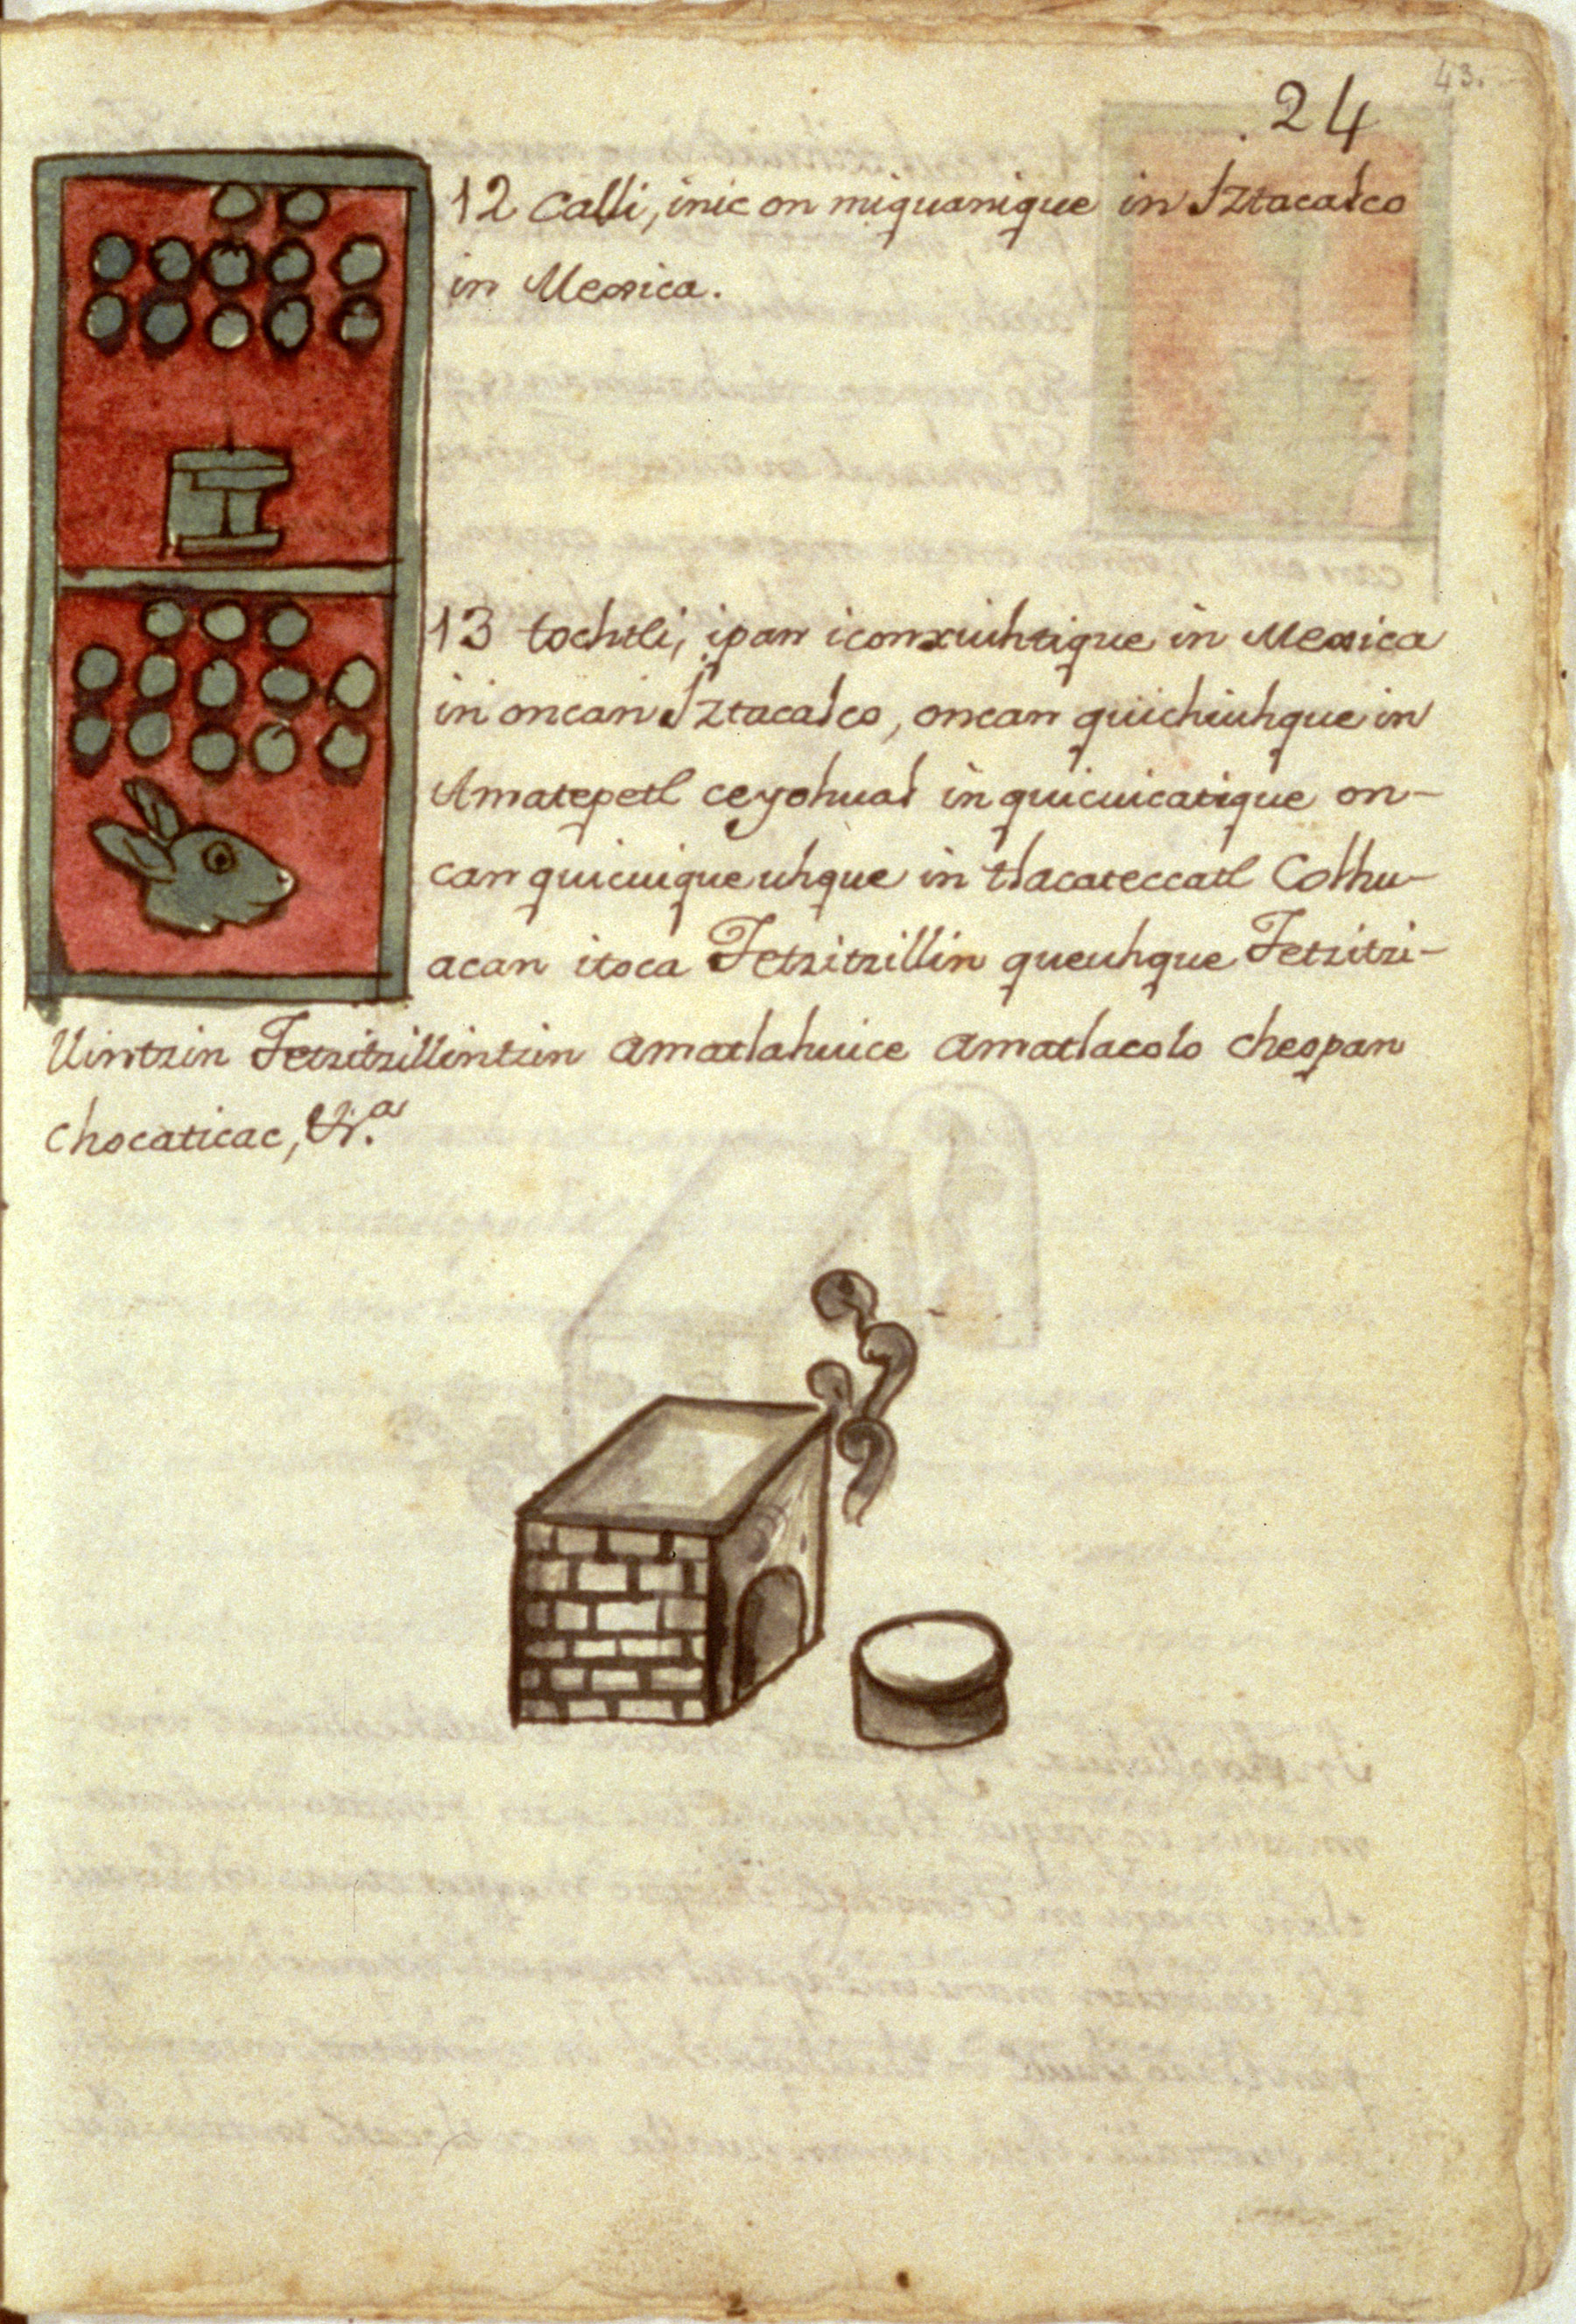 43.
24
12 calli, inic on miquanique in Iztacalco
in Mexica.
13 tochtli, ipan iconxiuhtique in Mexica
in oncan Iztacalco, oncan quichiuhque in
Amatepetl ceyohual in quicuicatique on-
can quicuiqueuhque in tlacateccatl Colhu-
acan itoca Tetzitzillin queuhque Tetzitzi-
llintzin Tetzitzillintzin amatlahuice amatlacolo cheopan
chocaticac, &.a